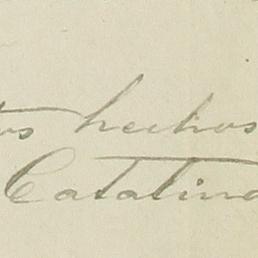 hechos
Catalina